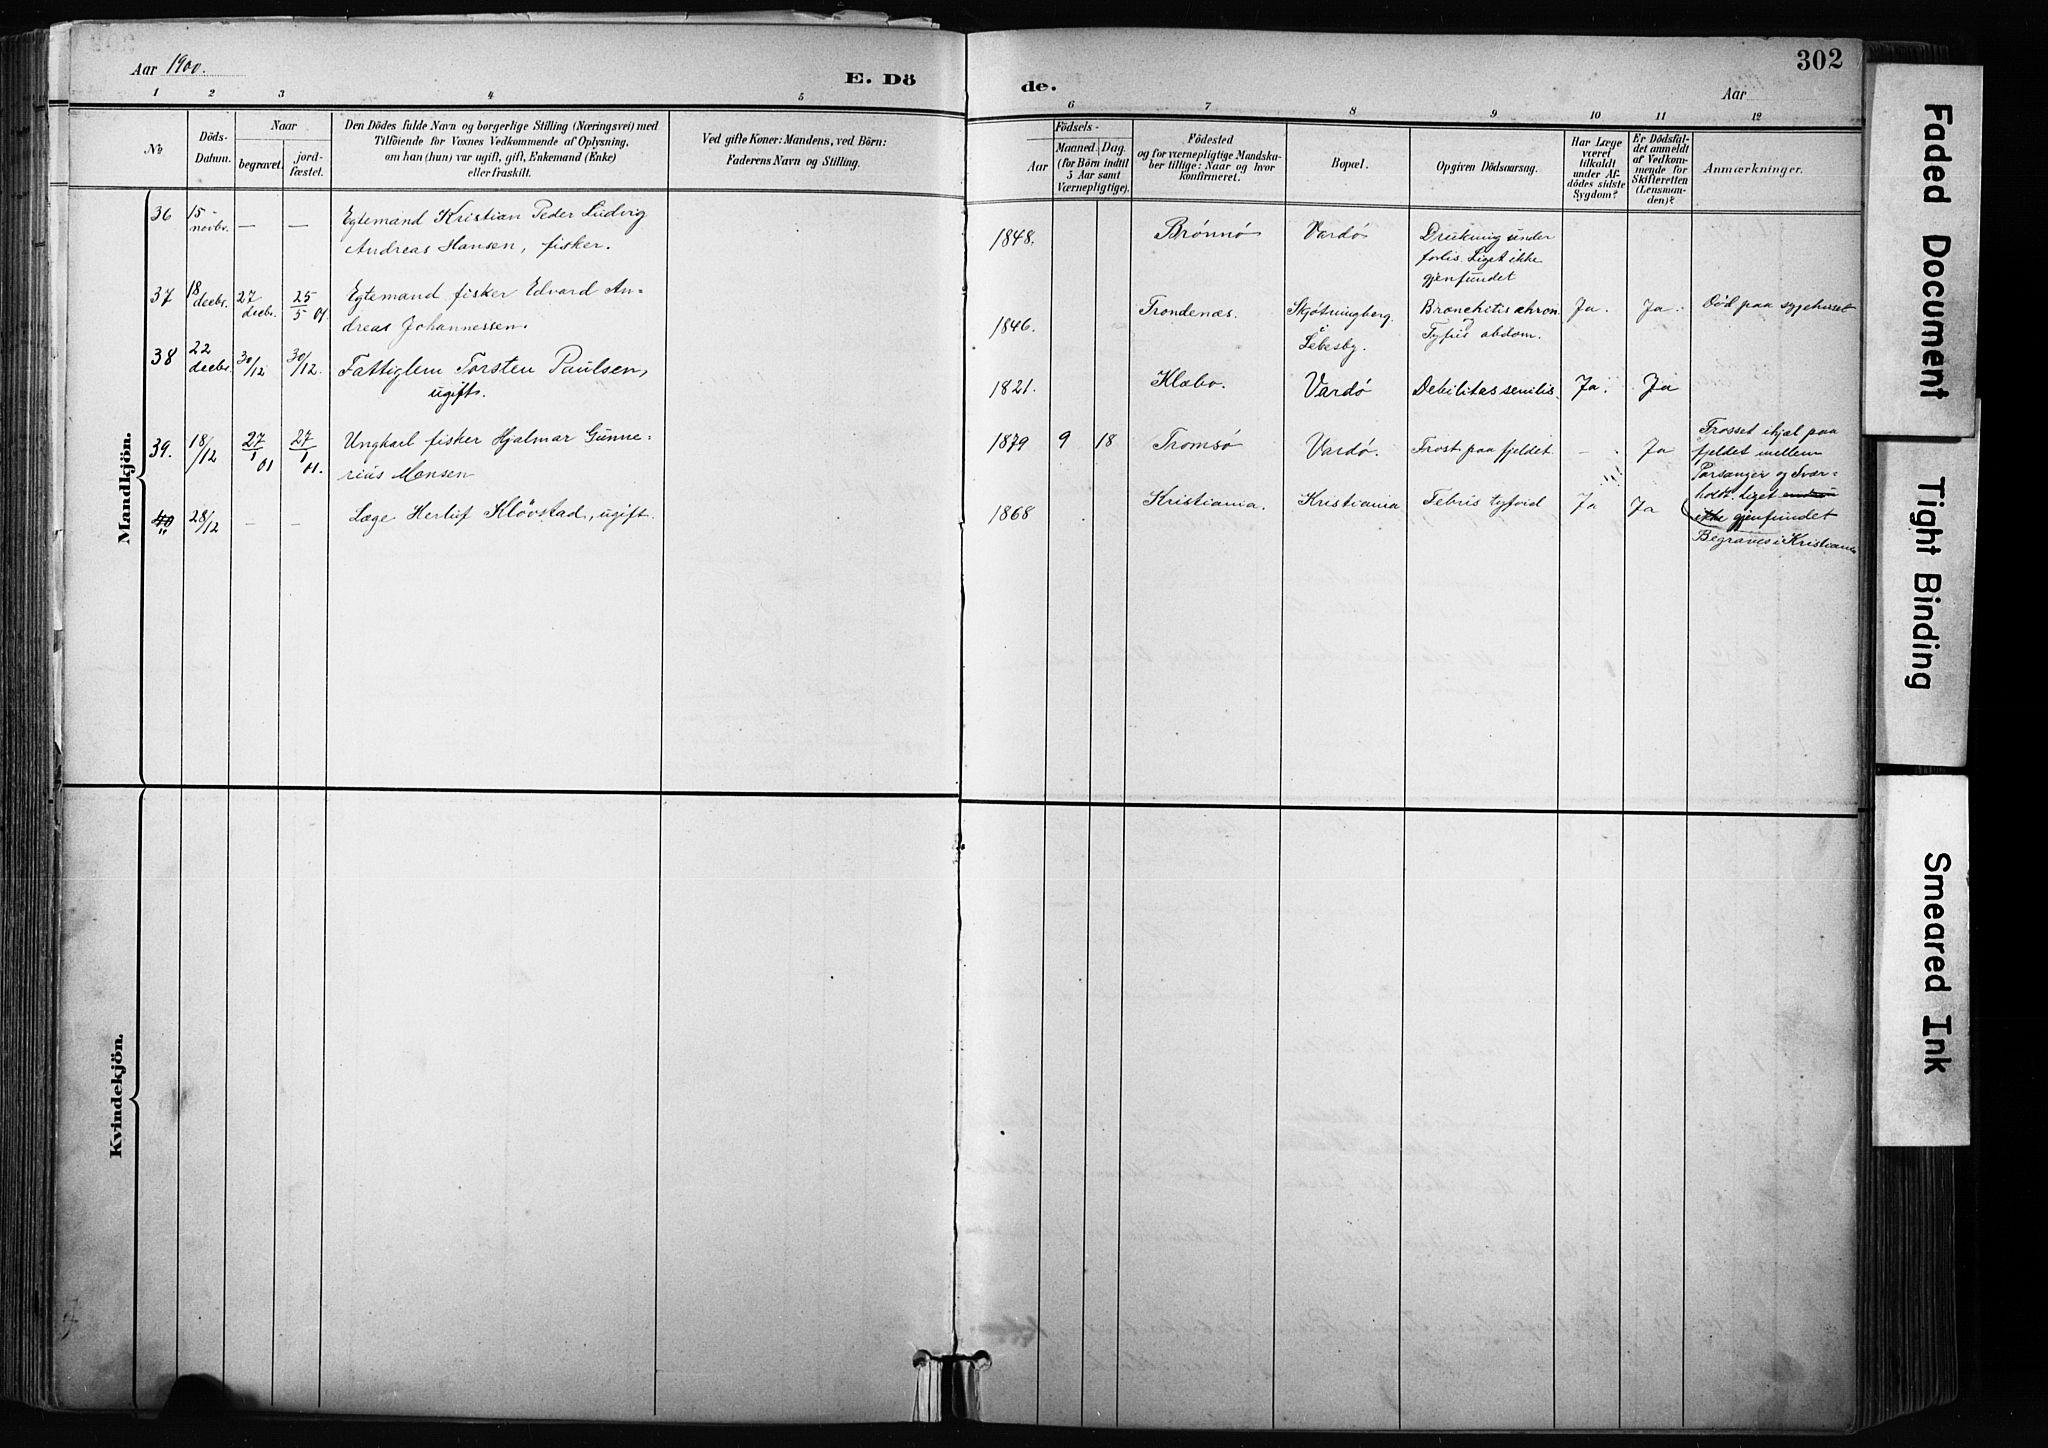 302
Aar 1900.
E. Dö
de.
Aar
1 2 3 4 5 6 7 8 9 10 11 12
No
Döds-
Datum.
Naar
begravet.
jord-
fæstet.
Den Dödes fulde Navn og borgerlige Stilling (Næringsvei) med
Tilföiende for Voxnes Vedkommende af Oplysning,
om han (hun) var ugift, gift, Enkemand (Enke)
eller fraskilt.
Ved gifte Koner: Mandens, ved Börn:
Faderens Navn og Stilling.
Födsels-
Aar
Maaned. Dag.
(for Börn indtil
5 Aar samt
Værnepligtige).
Födested
og for værnepligtige Mandska-
ber tillige: Naar og hvor
konfirmeret.
Bopæl.
Opgiven Dödsaarsag.
Har Læge
været
tilkaldt
under Af-
dödes sidste
Sygdom?
Er Dödsfal-
det anmeldt
af Vedkom-
mende for
Skifteretten
(Lensman-
den)?
Anmærkninger.
Mandkjön.
36 15- novbr. — — Egtemand Kristian Peder Ludvig
Andreas Hansen, fisker.
1848. Brønnø Vardø Drukning under
forlis. Liget ikke
gjenfundet
37 18 decbr. 27 decbr. 25/5 01. Egtemand fisker Edvard An-
dreas Johannessen.
1846. Trondenæs. Skjøtningberg. Bronchitis chron Ja. Ja. Død paa sygehuset
Lebesby. Tyfus abdom.
38 22 decbr. 30/12 30/12. Fattiglem Torsten Paulsen,
ugift.
1821. Klæbo. Vardø Debilitas senilis. Ja. Ja
39. 18/12 27/1 01 27/1 01. Ungkarl fisker Hjalmar Gunne-
rius Monsen
1879 9 18 Tromsø Vardø. Frost paa fjeldet. - Ja Frosset ihjel paa
fjeldet mellem
Porsanger og Svær-
holt. Liget
ikke gjenfundet
40 28/12 - - Læge Herluf Klövstad, ugift.
1868 Kristiania. Kristiania Febris tyfoid Ja Ja
Begraves i Kristiania
Kvindekjön.
Faded Document
Tight Binding
Smeared Ink